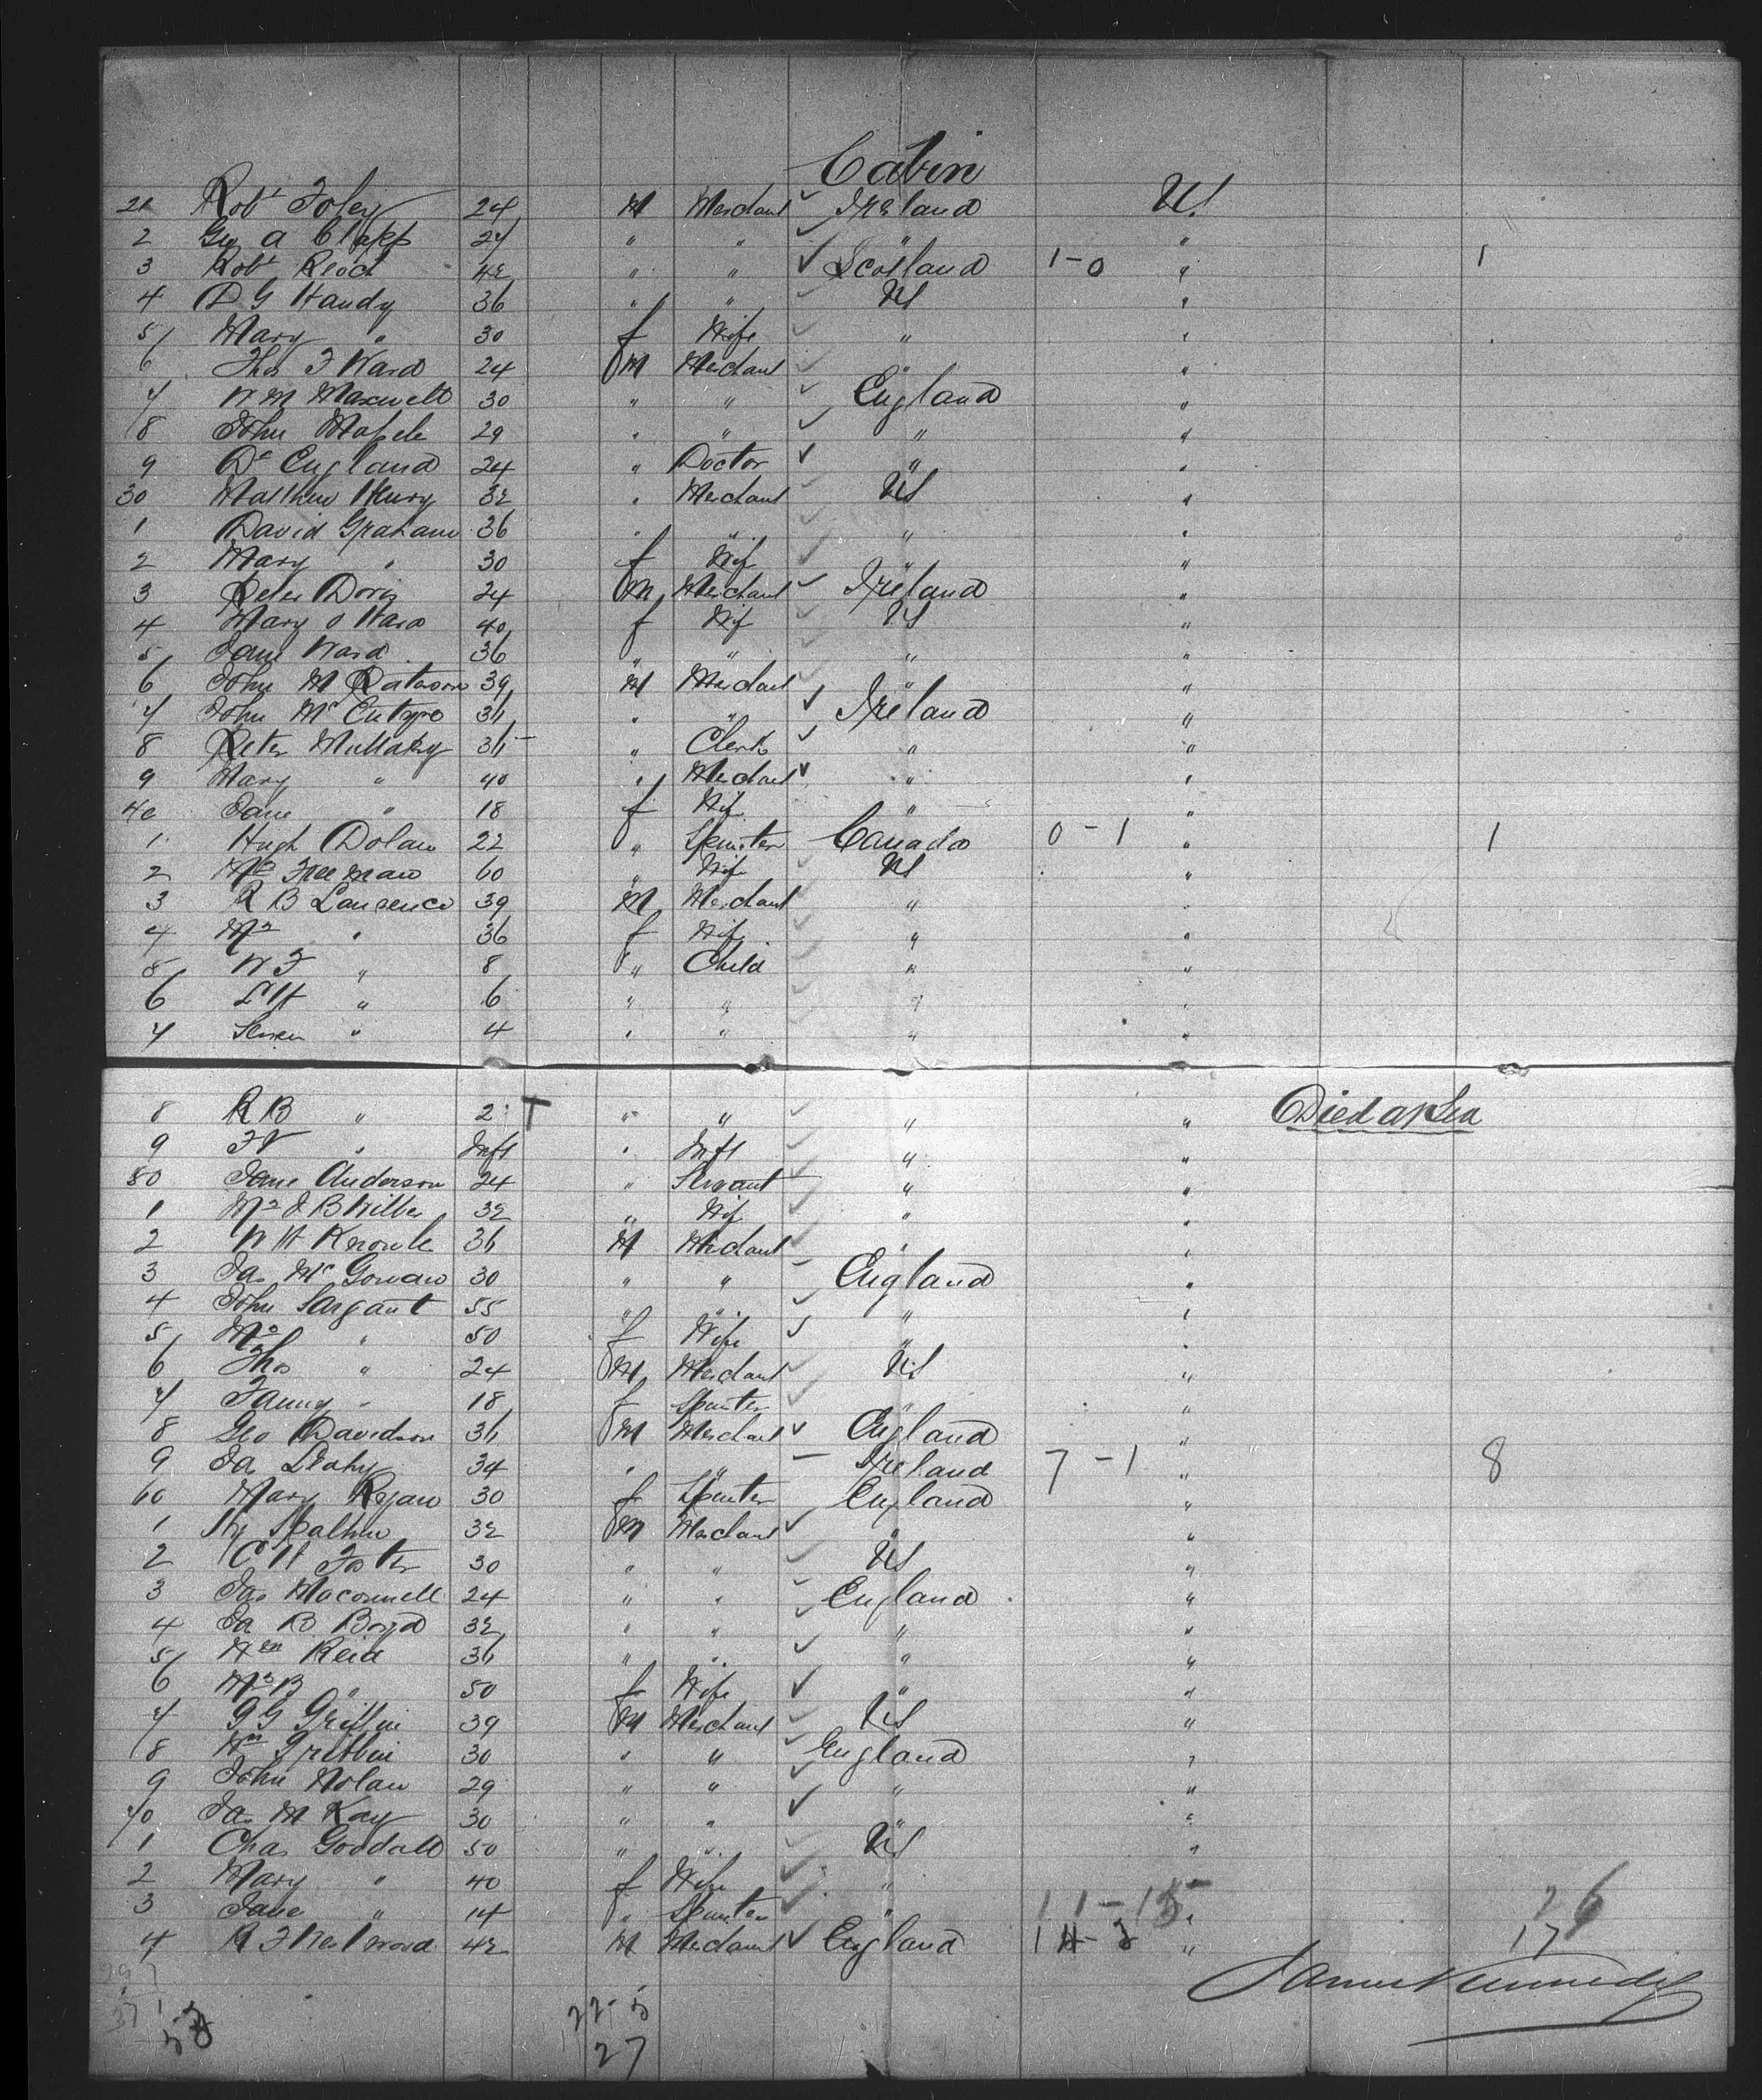 Cabin
21 Robt Foley 24 M Merchant ✓ Ireland US
2 Geo A Clapp 24 " " ✓ " "
3 Robt Reoch 42 " " ✓ Scotland 1-0 " 1
4 D G Handy 36 " " US "
5 Mary " 30 f Wife " "
6 Thos F Ward 24 M Merchant " "
7 W M Maxwell 30 " " England "
8 John 29 " " " "
9 Dr England 24 " Doctor ✓ " "
30 Matthew Henry 32 " Merchant US "
1 David Graham 36 " " " "
2 Mary " 30 f Wif " "
3 Peter Doris 24 M Merchant Ireland "
4 Mary Ward 40 f Wif US "
5 Jane Ward 36 " " " "
6 John M Paterson 39 M Merchant " "
7 John Mc Entyre 36 " " ✓ Ireland "
8 Peter Mullaky 36 " Clerk ✓ " "
9 Mary " 40 " Merchant ✓ " "
40 Jane " 18 f Wif " "
1 Hugh Dolan 22 " Spinster Canada 0-1 " 1
2 Freeman 60 " Wif US "
3 R B Laurence 39 M Merchant " "
4 Mrs " 36 f Wif " "
5 W F " 8 " Child " "
6 " 6 " " " "
7 " 4 " " " "
8 R B " 2 T " " " " Died at Sea
9 " Inft " Inft " "
50 Jane Anderson 24 " Servant " "
1 Mrs J B Wilber 32 " Wif " "
2 W H Knowle 36 M Merchant " "
3 Jas Mc Gowan 30 " " England "
4 John Sargant 55 " " " "
5 Mrs " 50 f Wife ✓ " "
6 Thos " 24 M Merchant US "
7 Fanny " 18 f Spinster " "
8 Geo Davidson 36 M Merchant ✓ England "
9 Jas Leahy 34 " " Ireland 7-1 " 8
60 Mary Regan 30 f Spinster England "
1 32 M Merchant ✓ " "
2 C H Foster 30 " " US "
3 Jas Maconnell 24 " " England "
4 Ja B Boyd 32 " " " "
5 Wm Reid 36 " " ✓ " "
6 Mrs B " 50 f Wife ✓ " "
7 G G Griffin 39 M Merchant US "
8 Wm Gribbin 30 " " England "
9 John Nolan 29 " " " "
70 Jas M Kay 30 " " ✓ " "
1 Chas Goodall 50 " " US "
2 Mary " 40 f Wife " "
3 Jane " 14 " Spinster " 11-15 " 26
4 R F Westwood 42 M Merchant ✓ England " 17
James Kennedy
37
22-5
27